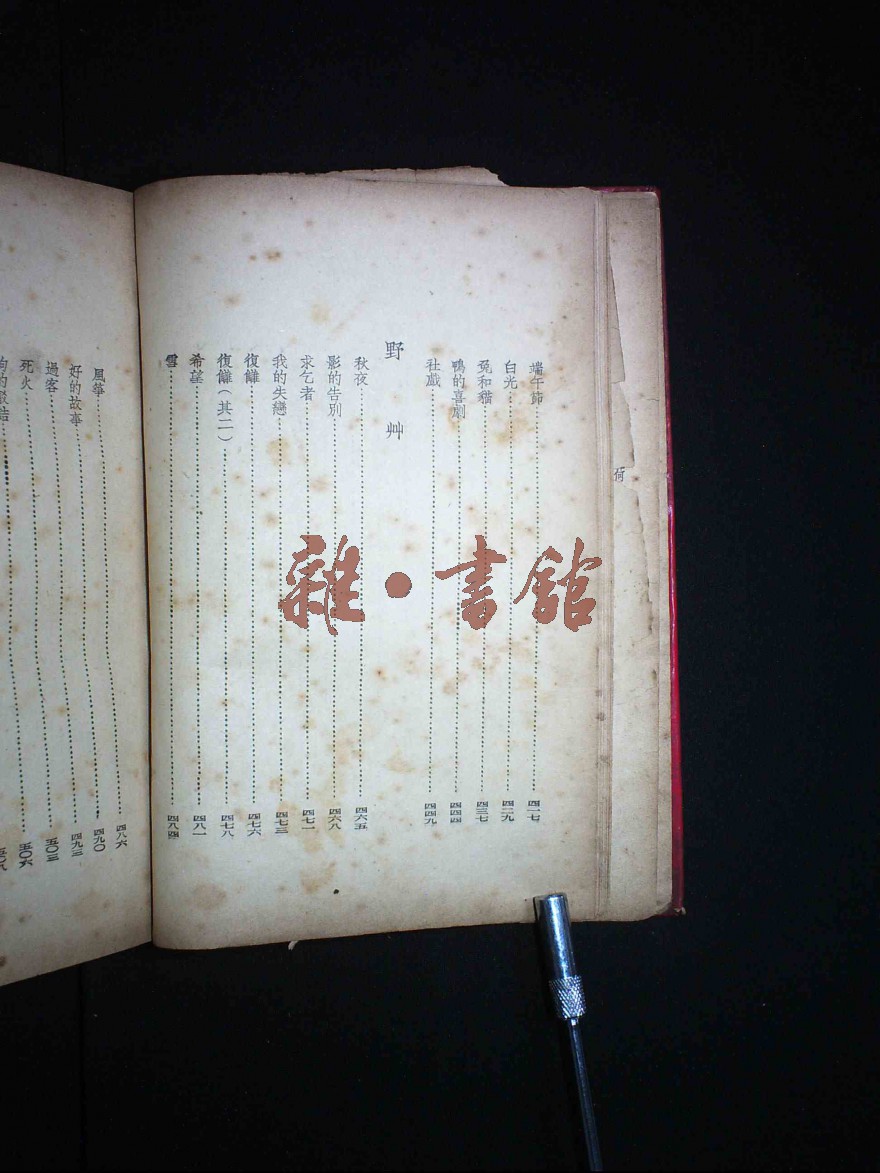 何
端午節 四一七
白光 四二九
兔和貓 四三七
鴨的喜劇 四四四
社戲 四四九
野艸
秋夜 四六五
影的告別 四六八
求乞者 四七一
我的失戀 四七三
復讎 四七六
復讎（其二） 四七八
希望 四八一
雪 四八四
四八六
風箏 四九〇
好的故事 四九三
過客
死火 五〇六
雜・書館